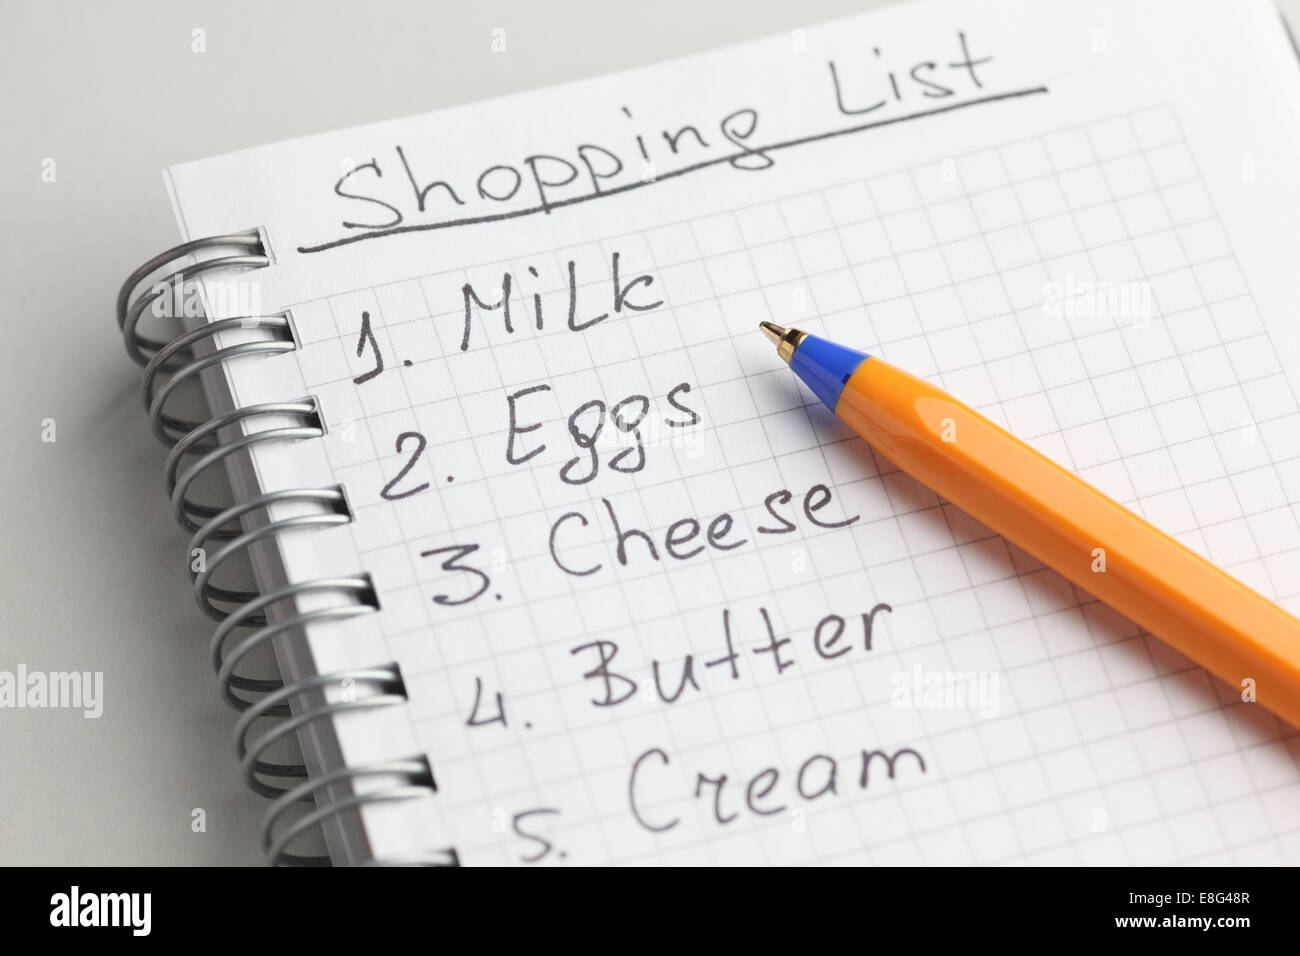 Shopping List
1. Milk
2. Eggs
3. Cheese
4. Butter
5. Cream
alamy
Image ID: E8G48R
www.alamy.com